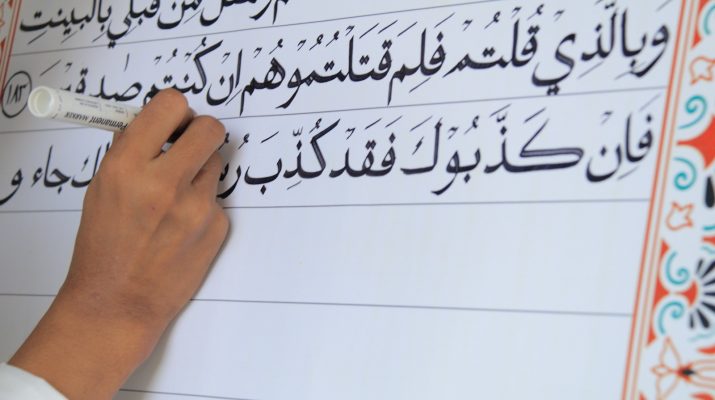 رسل من قبلي بالبينت
وبالذي قلتم فلم قتلتموهم ان كنتم صدقين ١٨٣
فان كذبوك فقد كذب رسل جاء و
Permanent MARKER